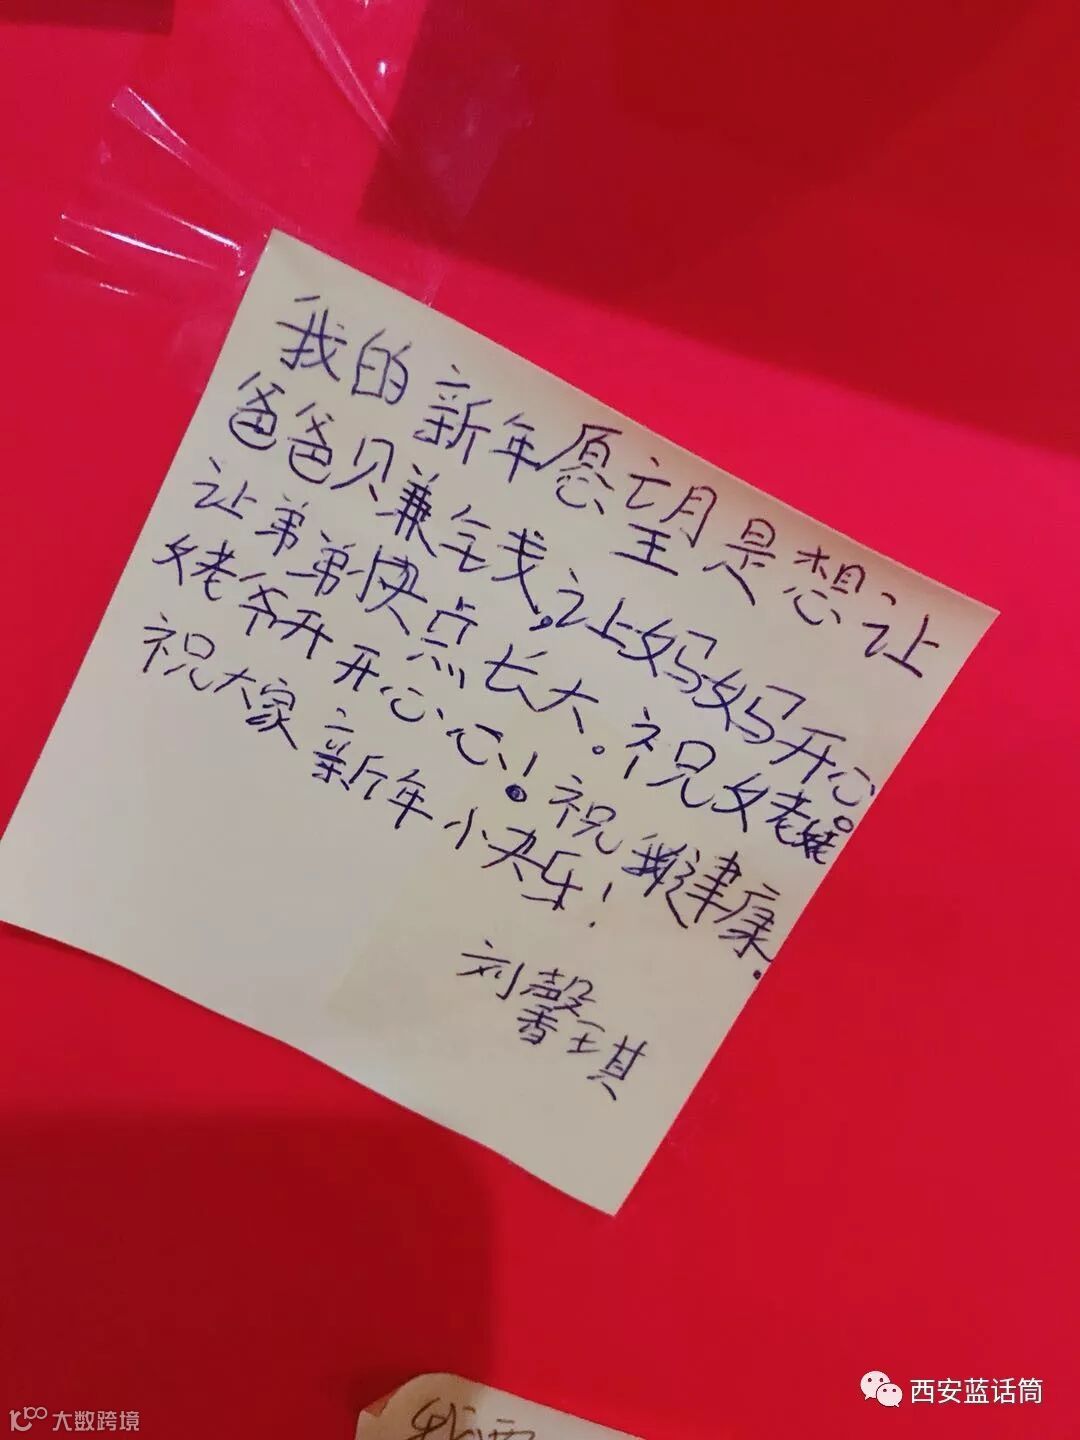 我的新年愿望是想让
爸爸赚钱。让妈妈开心。
让弟弟快点长大。祝姥姥
姥爷开开心心！祝我健康.
祝大家新年快乐！
刘馨琪
我要
西安蓝话筒
大数跨境